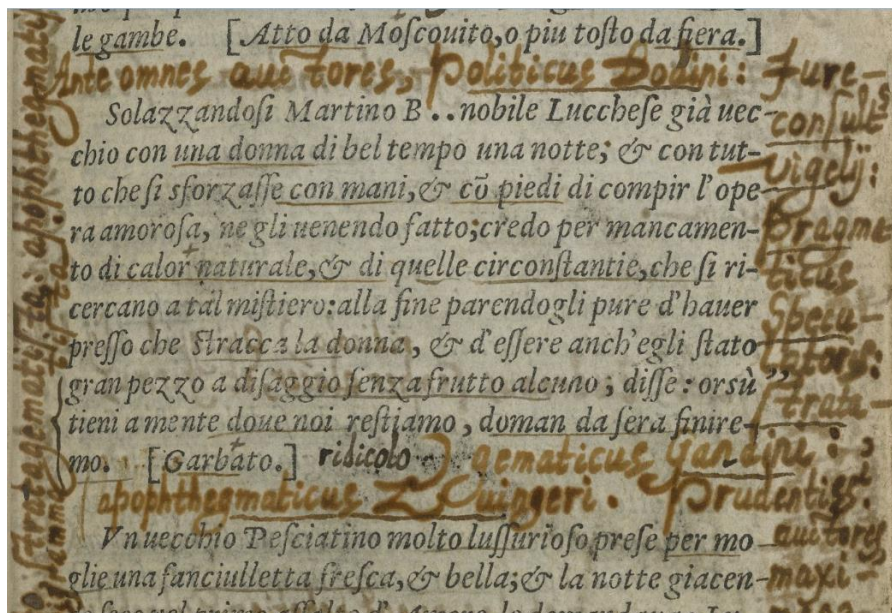 le gambe. [Atto da Moſcouito, o piu toſto da fiera.]
Ante omnes auctores, Politicus Bodini: Jure-
Solazzandoſi Martino B .. nobile Luccheſe già uec-
conſult9
chio con una donna di bel tempo una notte; & con tut-
Vigelij:
to che ſi sforzaſſe con mani, & cõ piedi di compir l'ope-
ra amoroſa, ne gli uenendo fatto; credo per mancamen-
Pragma
to di calor naturale, & di quelle circonſtantie, che ſi ri-
ticus
cercano a tal miſtiero: alla fine parendogli pure d'hauer
Specu-
preſſo che ſtracca la donna, & d'eſſere anch'egli ſtato
latoris:
gran pezzo a diſaggio ſenza frutto alcuno; diſſe: orsù ”
ſtrata-
tieni a mente doue noi reſtiamo, doman da ſera finire-
mo. [Garbato.] ridicolo
gematicus Gandini:
apophthegmaticus Zuingeri. Prudentiss:
Vn uecchio Peſciatino molto luſſurioſo, preſe per mo
auctores
glie una fanciulletta freſca, & bella; & la notte giacen-
maxi-
Stratagematiſta; apophthegmatiſ